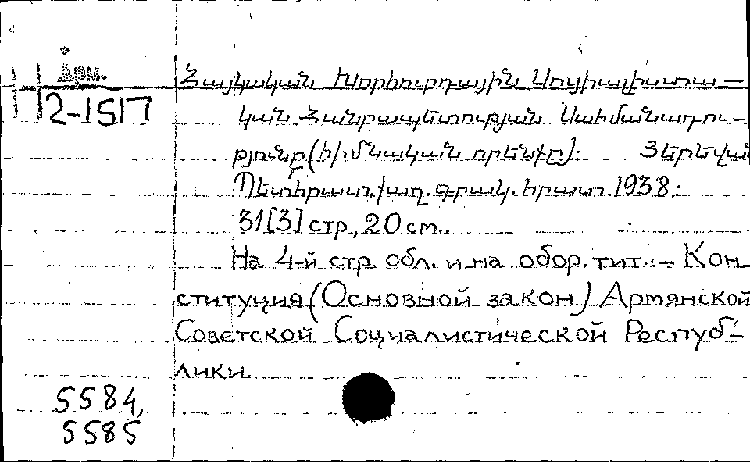 Арм.
2-1517
Հայկական Խորհուրդային Սոցիալիստա-
կան Հանրապետության Սահմանադրու-
թյունը (հիմնական օրենքը). Յերևան
Պետհրատ. քաղ. գրակ. հրատ. 1938.
31[3] стр., 20 см.
На 4-й стр. обл. и на обор. тит. - Кон-
ституция (Основной закон) Армянской
Советской Социалистической Респуб-
лики.
5584,
5585